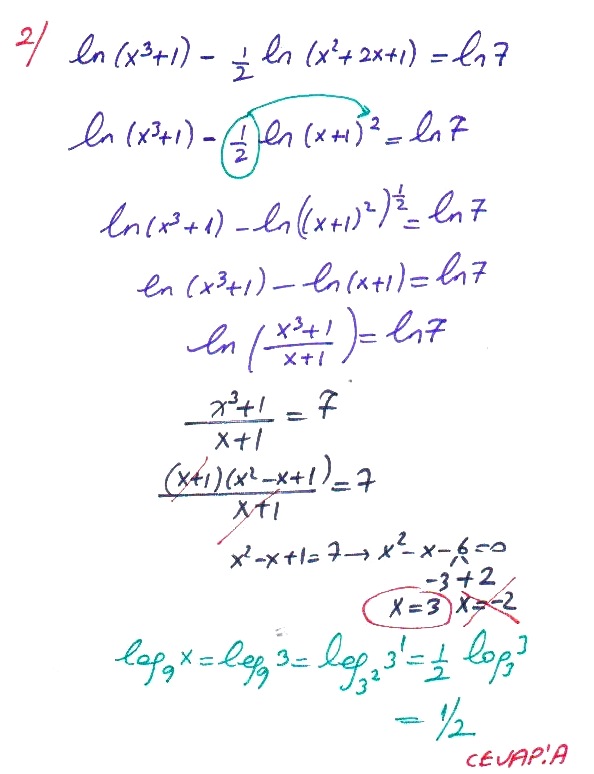 2/ ln(x³+1) - 1/2 ln(x²+2x+1) = ln7
ln(x³+1) - 1/2 ln(x+1)² = ln7
ln(x³+1) - ln((x+1)²)^1/2 = ln7
ln(x³+1) - ln(x+1) = ln7
ln((x³+1)/(x+1)) = ln7
(x³+1)/(x+1) = 7
(x+1)(x²-x+1)/(x+1) = 7
x²-x+1=7 → x²-x-6=0
-3 +2
x=3 x=-2
log₉x = log₉3 = log₃²3¹ = 1/2 log₃3
= 1/2
CEVAP:A